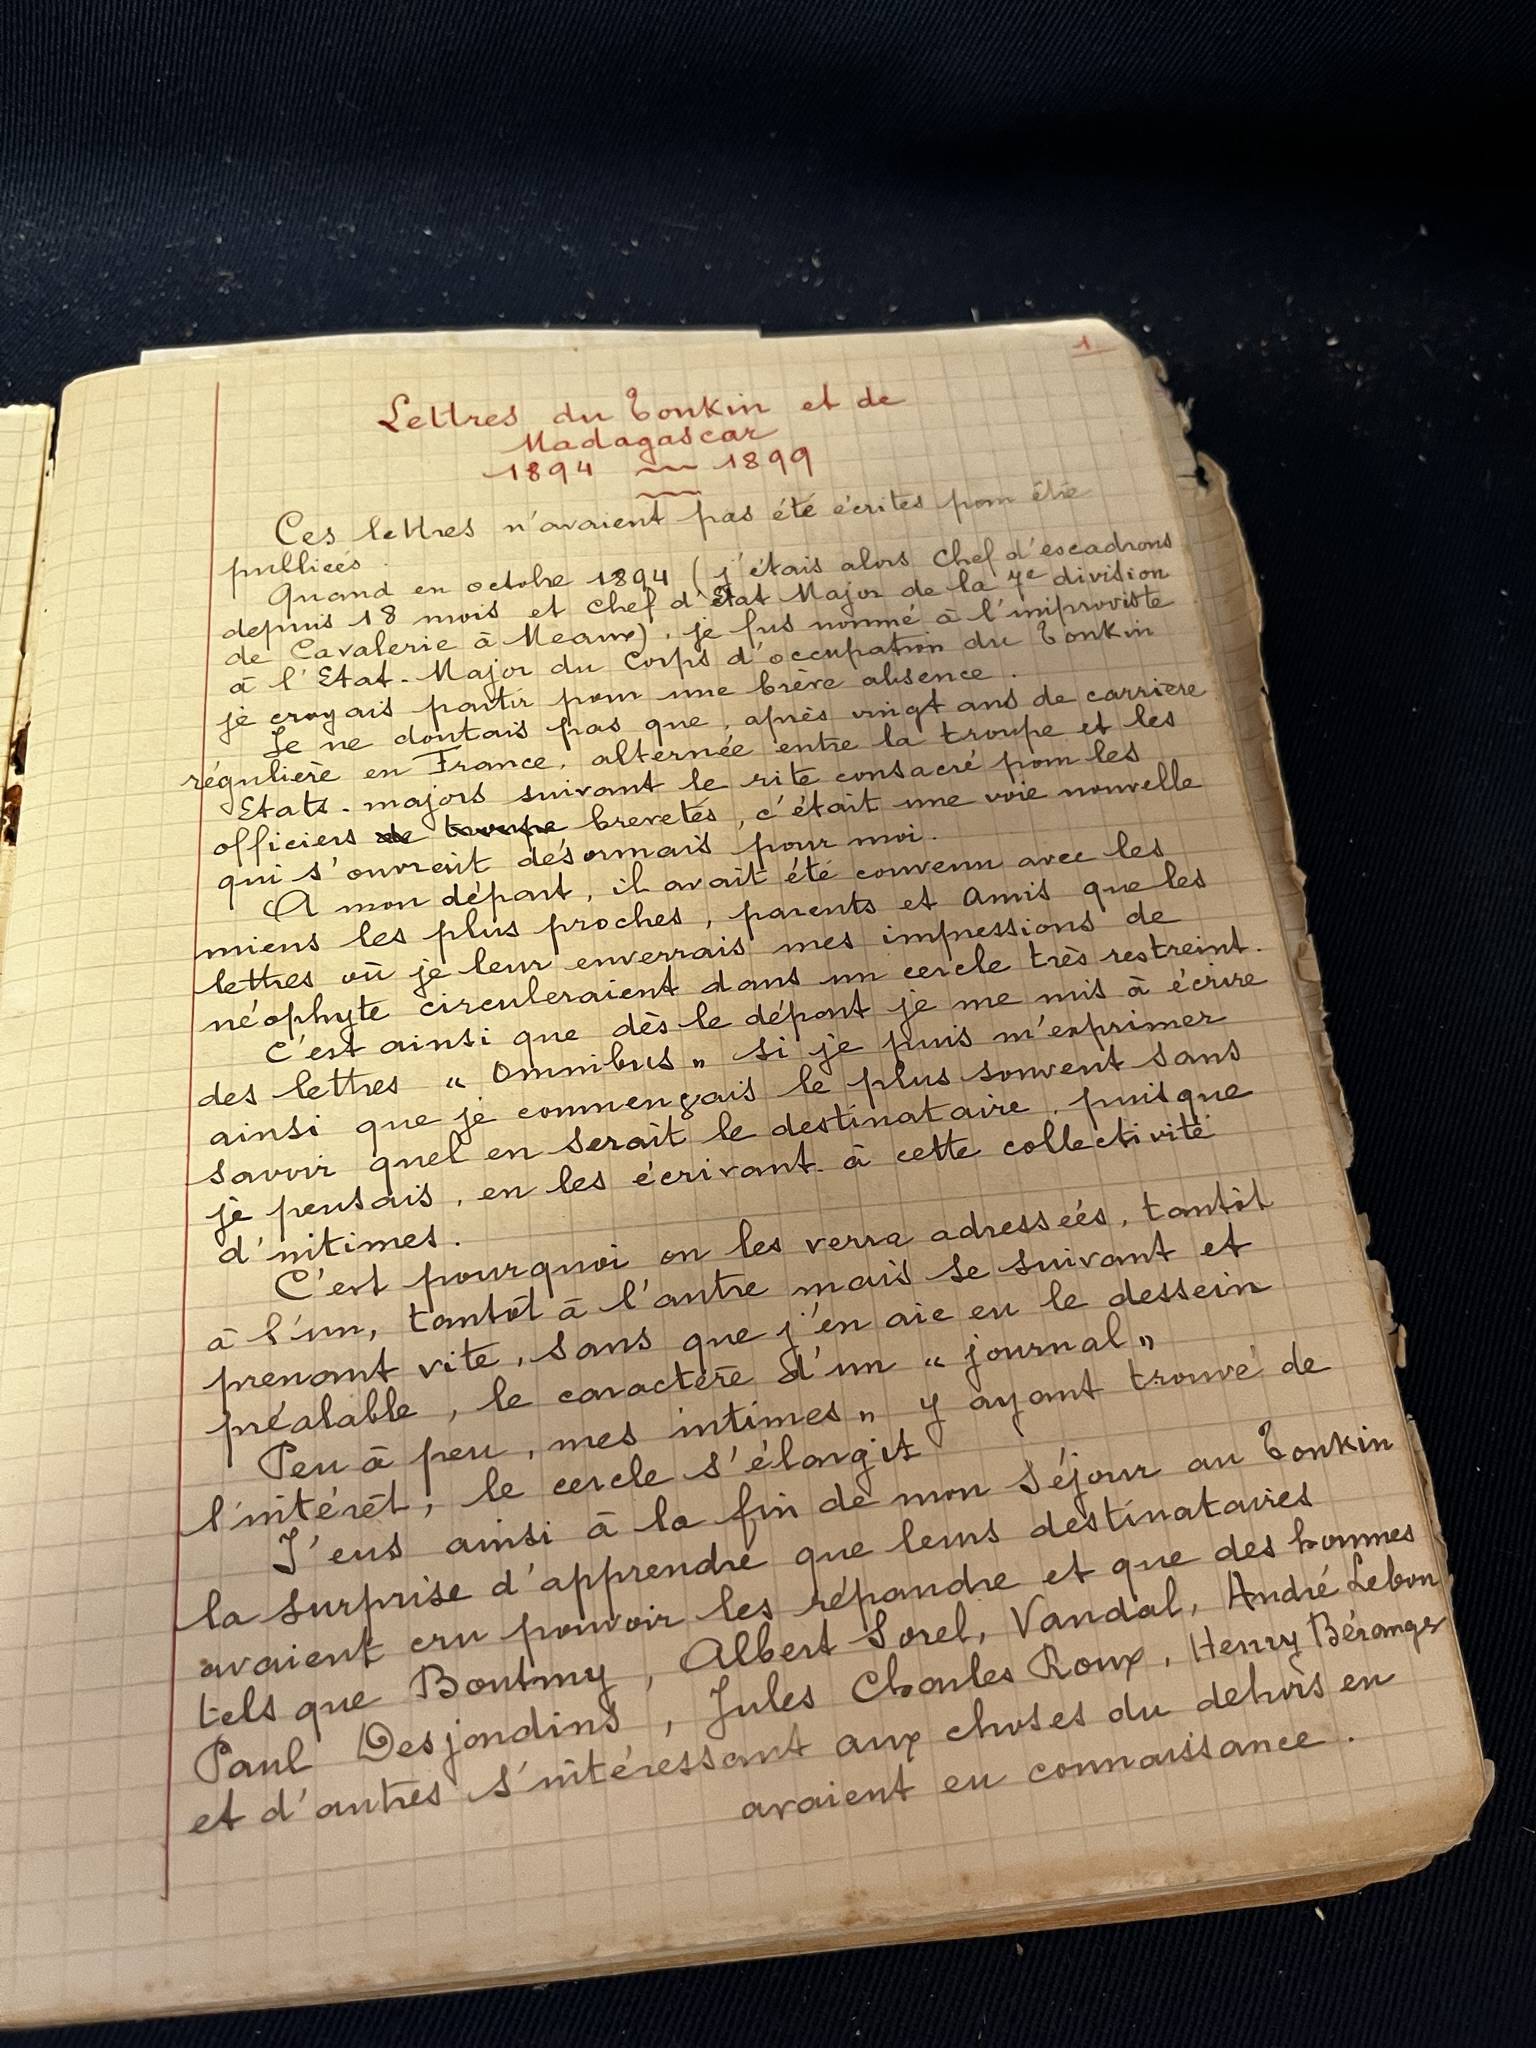 1
Lettres du Tonkin et de
Madagascar
1894 ~ 1899
Ces lettres n'avaient pas été écrites pour être
publiées.
Quand en octobre 1894 (j'étais alors Chef d'escadrons
depuis 18 mois et Chef d'Etat Major de la 7e division
de Cavalerie à Meaux), je fus nommé à l'improviste
à l'Etat-Major du Corps d'occupation du Tonkin
je croyais partir pour une brève absence.
Je ne doutais pas que, après vingt ans de carrière
régulière en France, alternée entre la troupe et les
Etats-majors suivant le rite consacré pour les
officiers de troupe brevetés, c'était une voie nouvelle
qui s'ouvrait désormais pour moi.
A mon départ, il avait été convenu avec les
miens les plus proches, parents et amis que les
lettres où je leur enverrais mes impressions de
néophyte circuleraient dans un cercle très restreint.
C'est ainsi que dès le départ je me mis à écrire
des lettres "Omnibus" si je puis m'exprimer
ainsi que je commençais le plus souvent sans
savoir quel en serait le destinataire, puisque
je pensais, en les écrivant à cette collectivité
d'intimes.
C'est pourquoi on les verra adressées, tantôt
à l'un, tantôt à l'autre mais se suivant et
prenant vite, sans que j'en aie eu le dessein
préalable, le caractère d'un "journal"
Peu à peu, mes intimes" y ayant trouvé de
l'intérêt, le cercle s'élargit
J'eus ainsi à la fin de mon séjour au Tonkin
la surprise d'apprendre que leurs destinataires
avaient cru pouvoir les répandre et que des hommes
tels que Boutmy, Albert Sorel, Vandal, André Lebon
Paul Desjardins, Jules Charles Roux, Henry Béranger
et d'autres s'intéressant aux choses du dehors en
avaient eu connaissance.